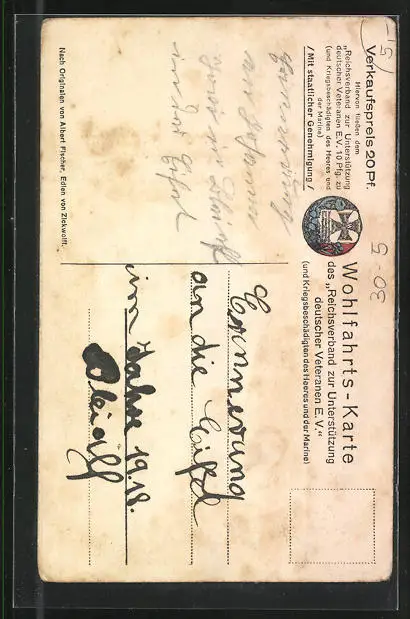 Verkaufspreis 20 Pf.
Hiervon fließen dem
„Reichsverband zur Unterstützung
deutscher Veteranen E.V. 10 Pfg. zu
(und Kriegsbeschädigten des Heeres und
der Marine)
/ Mit staatlicher Genehmigung /
Wohlfahrts-Karte
des „Reichsverband zur Unterstützung
deutscher Veteranen E. V.“
(und Kriegsbeschädigten des Heeres und der Marine)
Erinnerung
an
in der Eifel
Erinnerung
an die Eifel
im Jahre 1918.
Nach Originalen von Albert Fischer, Edlen von Zickwolff.